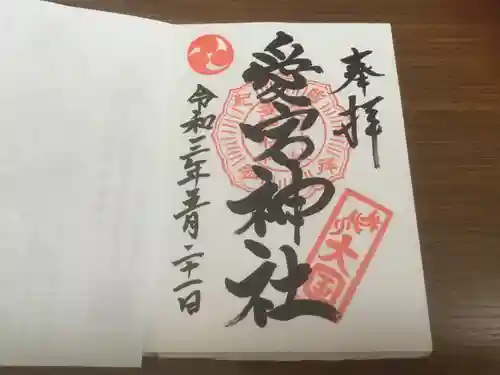 奉拝
愛宕神社
令和三年五月二十一日
大国